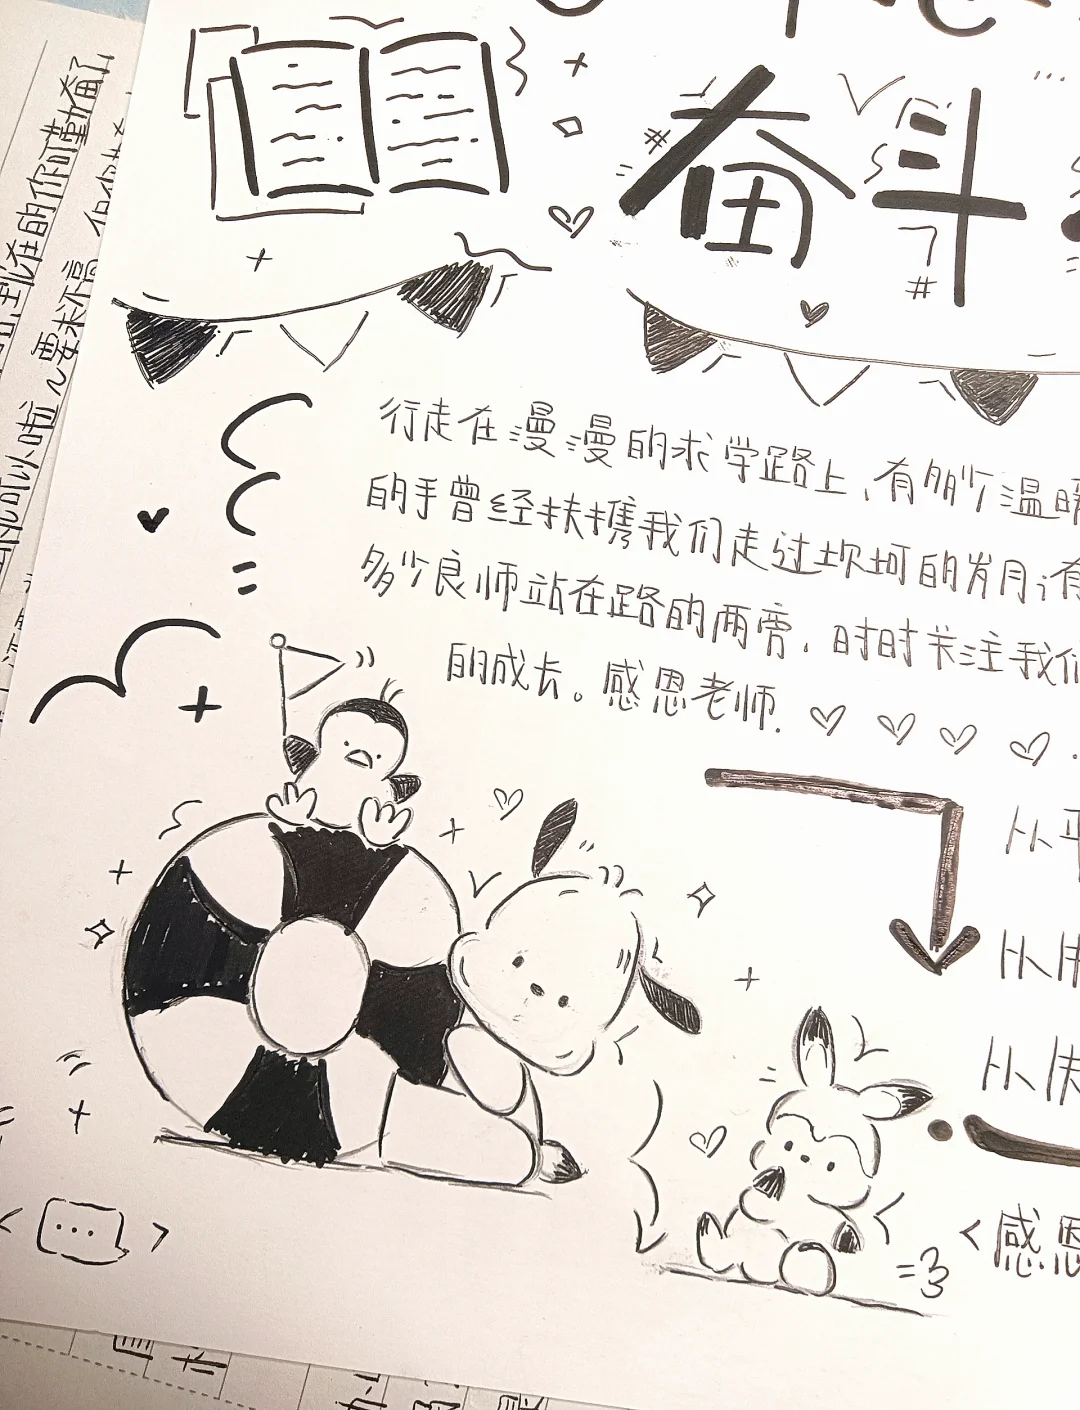 奋斗
行走在漫漫的求学路上，有多少温暖
的手曾经扶携我们走过坎坷的岁月；有
多少良师站在路的两旁，时时关注我们
的成长。感恩老师.
从平
从
从
<感恩
的你可勤奋了
可以啦～要求不高